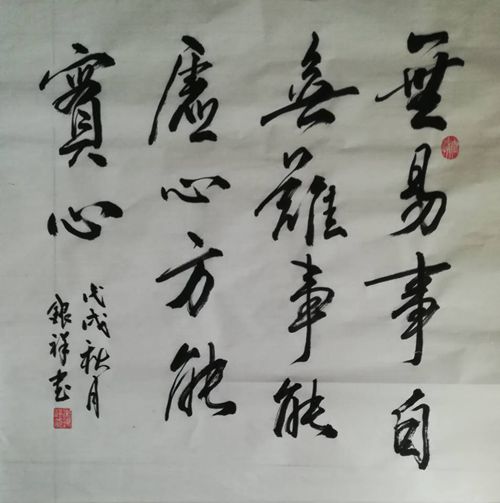 無易事自
無難事能
虛心方能
實心
戊戌秋月
銀祥书